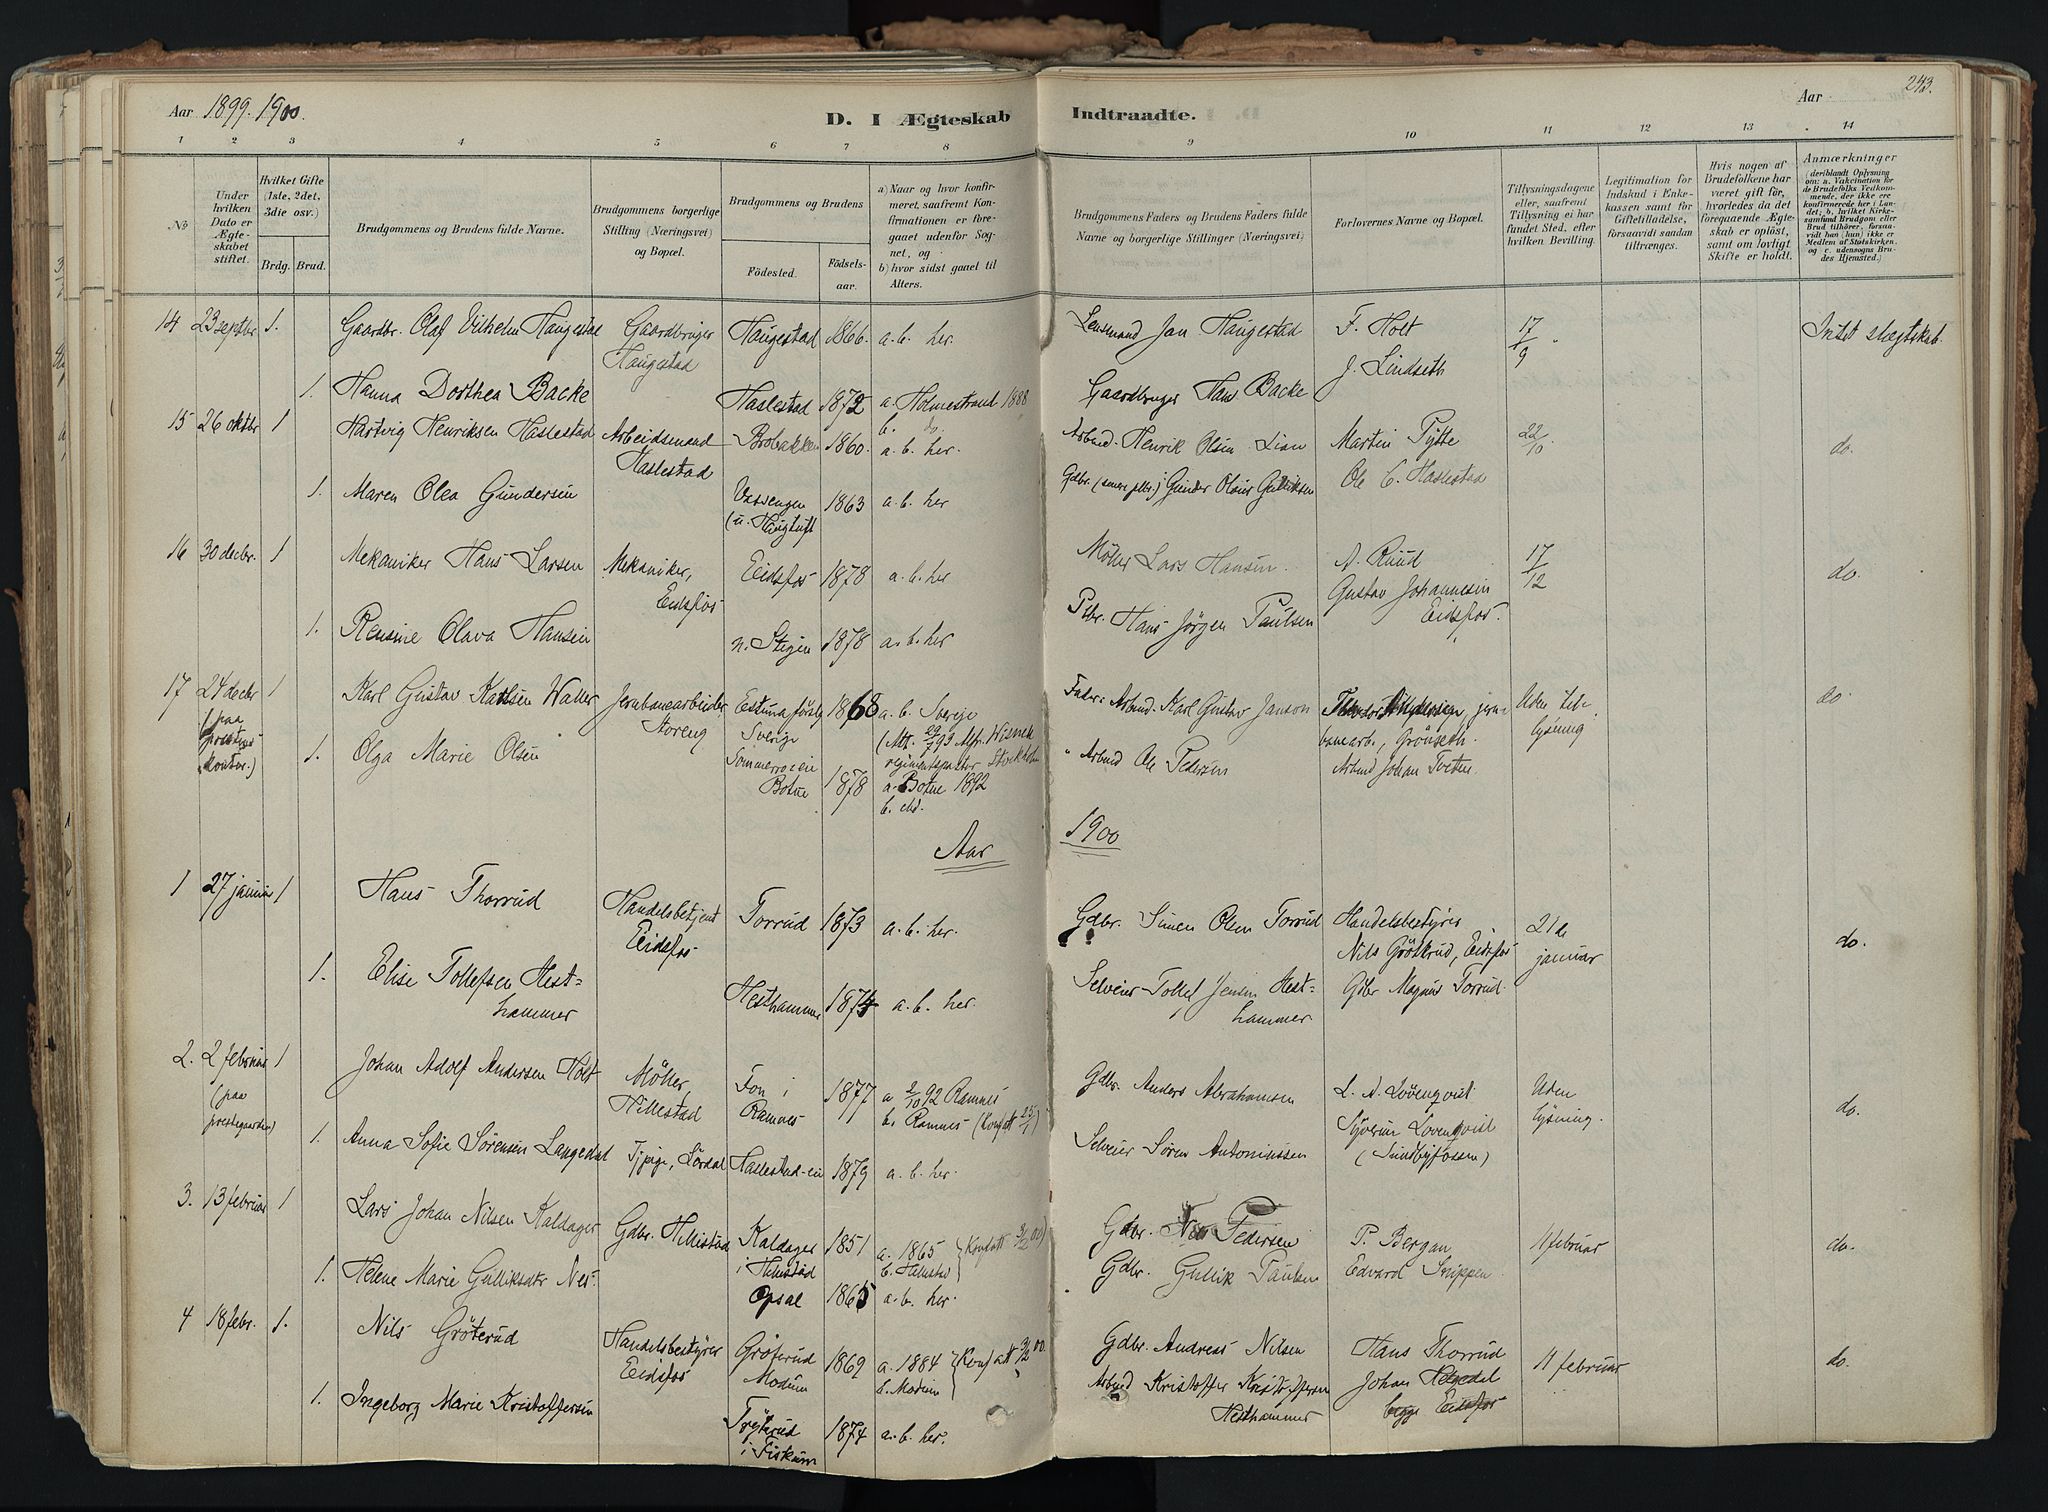 Aar 1899. 1900.
D. I Ægteskab
Indtraadte.
Aar
243.
1 2 3 4 5 6 7 8 9 10 11 12 13 14
No
Under hvilken Dato er Ægteskabet stiftet.
Hvilket Gifte (1ste, 2det, 3die osv.)
Brdg. Brud.
Brudgommens og Brudens fulde Navne.
Brudgommens borgerlige Stilling (Næringsvei) og Bopæl.
Brudgommens og Brudens
Födested. Födselsaar.
a) Naar og hvor konfirmeret, saafremt Konfirmationen er foregaaet udenfor Sognet, og
b) hvor sidst gaaet til Alters.
Brudgommens Faders og Brudens Faders fulde Navne og borgerlige Stillinger (Næringsvei)
Forlovernes Navne og Bopæl.
Tillysningsdagene eller, saafremt Tillysning ei har fundet Sted, efter hvilken Bevilling.
Legitimation for Indskud i Enkekassen samt for Giftetilladelse, forsaavidt saadan tiltrænges.
Hvis nogen af Brudefolkene har været gift för, hvorledes da det foregaaende Ægteskab er oplöst, samt om lovligt Skifte er holdt.
Anmærkninger
(deriblandt Oplysning om: a. Vakcination for de Brudefolks Vedkommende, der ikke ere konfirmerede her i Landet; b. hvilket Kirkesamfund Brudgom eller Brud tilhörer, forsaavidt han (hun) ikke er Medlem af Statskirken, og c. udensogns Brudes Hjemsted.)
14 23 septbr. 1. Gaardbr. Olaf Vilhelm Haugestad Gaardbruger Haugestad Haugestad 1866. a. b. her. Lensmand Jan Haugestad F. Holt 17/9 Intet slægtskab.
J. Lindseth
1. Hanna Dorthea Backe Haslestad 1872 a. Holmestrand 1888 b. do. Gaardbruger Hans Backe
15 26 oktbr 1 Hartvig Henriksen Haslestad Arbeidsmand Haslestad Brobakken 1860. a. b. her. Arbmd. Henrik Olsen Lian Martin Pytte 22/10 do.
1. Maren Olea Gundersen 1863 a. b. her Gdbr. Gunder Olaus Gulliksen Ole C. Haslestad
16 30 decbr. 1 Mekaniker Hans Larsen Mekaniker, Eidsfos Eidsfos 1878 a. b. her Möller Lars Hansen. A. Ruud 17/12 do.
Gustav Johannesen Eidsfos.
1. Rensine Olava Hansen n. Stigen 1878 a. b. her Plbr. Hans Jörgen Paulsen
17 24 decbr (paa prestens kontor.) 1 Karl Gustav Karlsen Waller Jernbanearbeider, Storeng Estuna Sverige 1868 a. b. Sverige Fader: Arbmd. Karl Gustav Janson jernbanearb., Grönseth. Uden lysning do
Arbmd Johan Tveten
1. Olga Marie Olsen Sommerroen Botne 1878 a. Botne 1892 " Arbmd Ole Pedersen
Aar 1900
1 27 januar 1 Hans Thorrud Handelsbetjent Eidsfos Torrud 1873 a. b. her. Gdbr. Simen Olsen Torrud Handelsbestyrer Nils Grötterud, Eidsfos 21de januar do.
Gdbr Magnus Torrud.
1. Elise Tollefsen Hesthammer Hesthammer 1874 a. b. her. Selveier Tollef Jensen Hesthammer
2. 2 februar (paa prestegaarden) 1 Johan Adolf Andersen Holt Möller, Hillestad Fon i Ramnes 1877 a 2/10 92 Ramnes b. Ramnes (Konf att 25/1) Gdbr. Anders Abrahamsen L. A. Lövenqvist Uden lysning. do.
Syverin Lovenqvist (Sundbyfossen)
1. Anna Sofie Sörensen Langedal Tjpige, Lördal Haslestad-eie 1879 a. b. her. Selveier Sören Antoniussen
3. 13 februar 1 Lars Johan Nilsen Kaldager Gdbr. Hillestad Kaldager i Hillestad 1851 a. 1865 b. Hillestad Konfatt Gdbr. Nils Pedersen P. Bergan 11 februar do.
1. Helene Marie Gulliksdtr Nes Opsal 1865 a. b. her. Gdbr. Gullik Paulsen Edvard Snippen.
4 18 febr. 1. Nils Gröterud Handelsbestyrer Eidsfos Gröterud Modum 1869 a. 1884 b. Modum Konf att Gdbr. Andreas Nilsen Hans Thorrud 11 februar do.
1. Ingeborg Marie Kristoffersen i Fiskum 1874 a. b. her. Arbmd Kristoffer Kristoffersen Hesthammer Johan begge Eidsfos